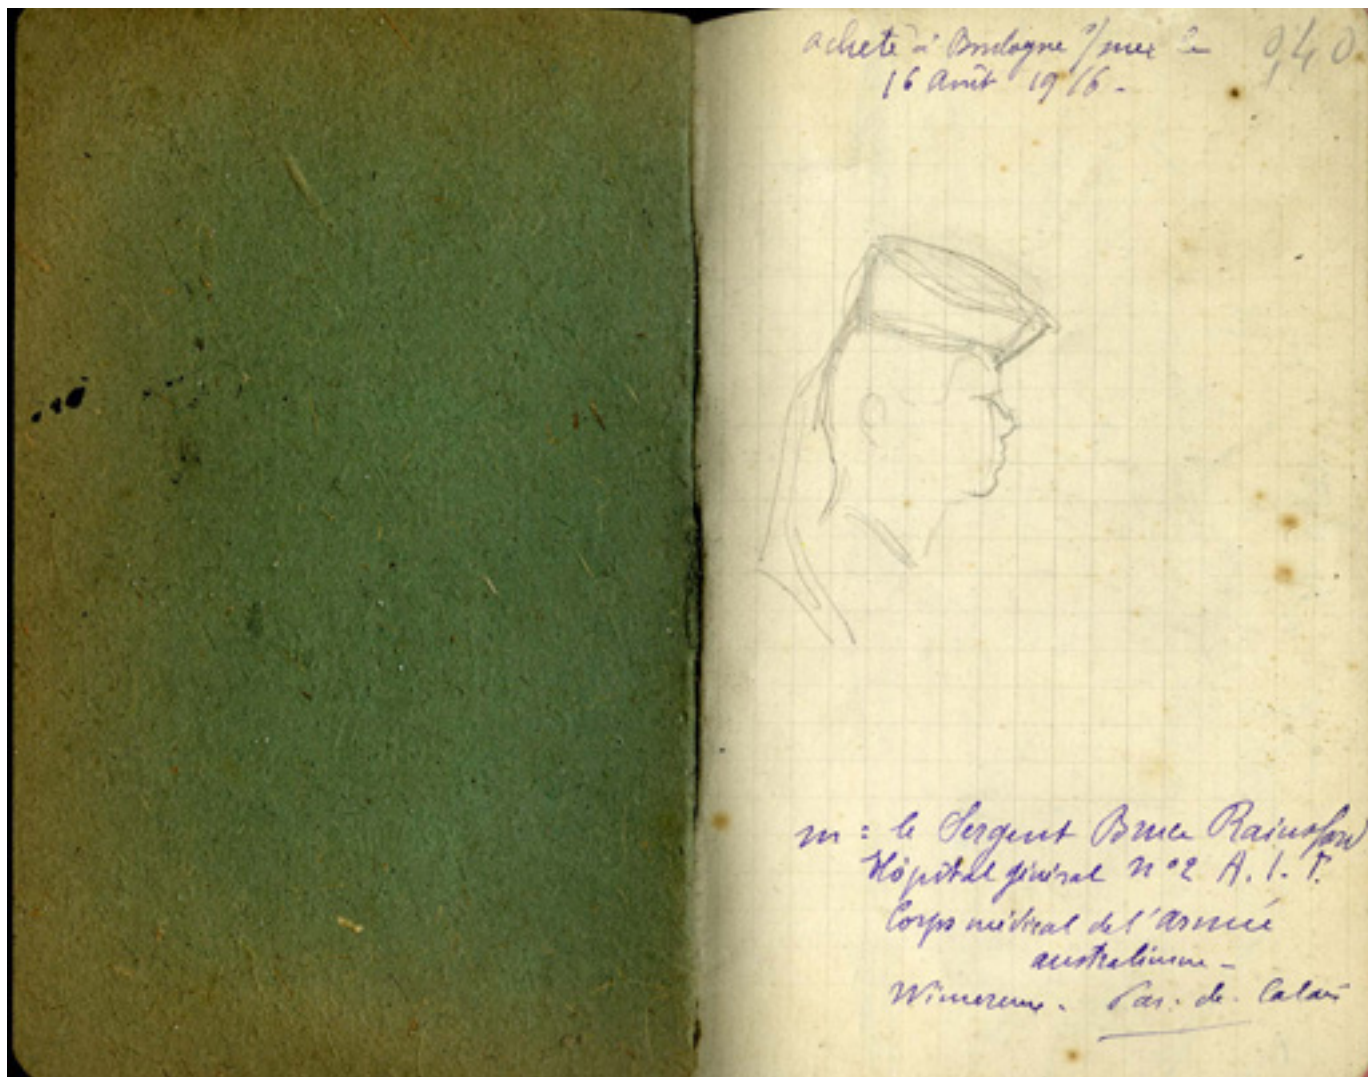 acheté à Boulogne s/mer le 940
16 Août 1916 -
m : le Sergent Bruce Rainsford
Hôpital général n° 2 A. I. F.
Corps médical de l'armée
australienne -
Wimereux - Pas-de-Calais